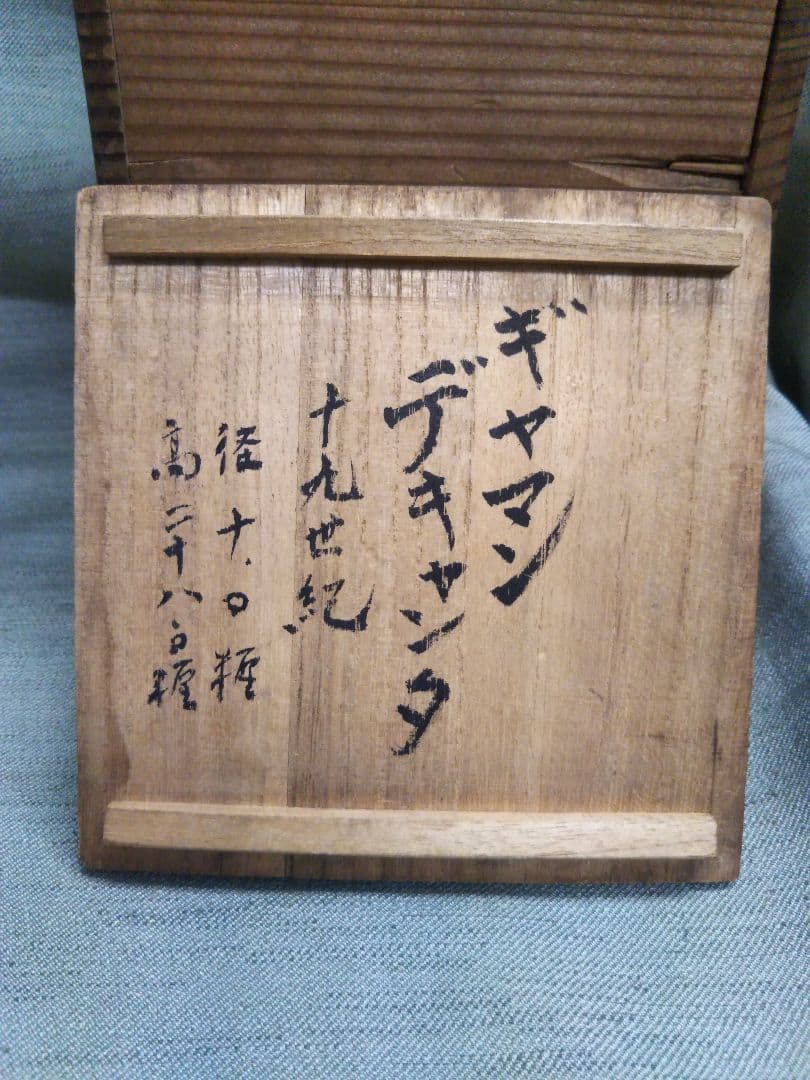 ギヤマン
デキャンタ
十九世紀
径十.〇糎
高二十八.〇糎